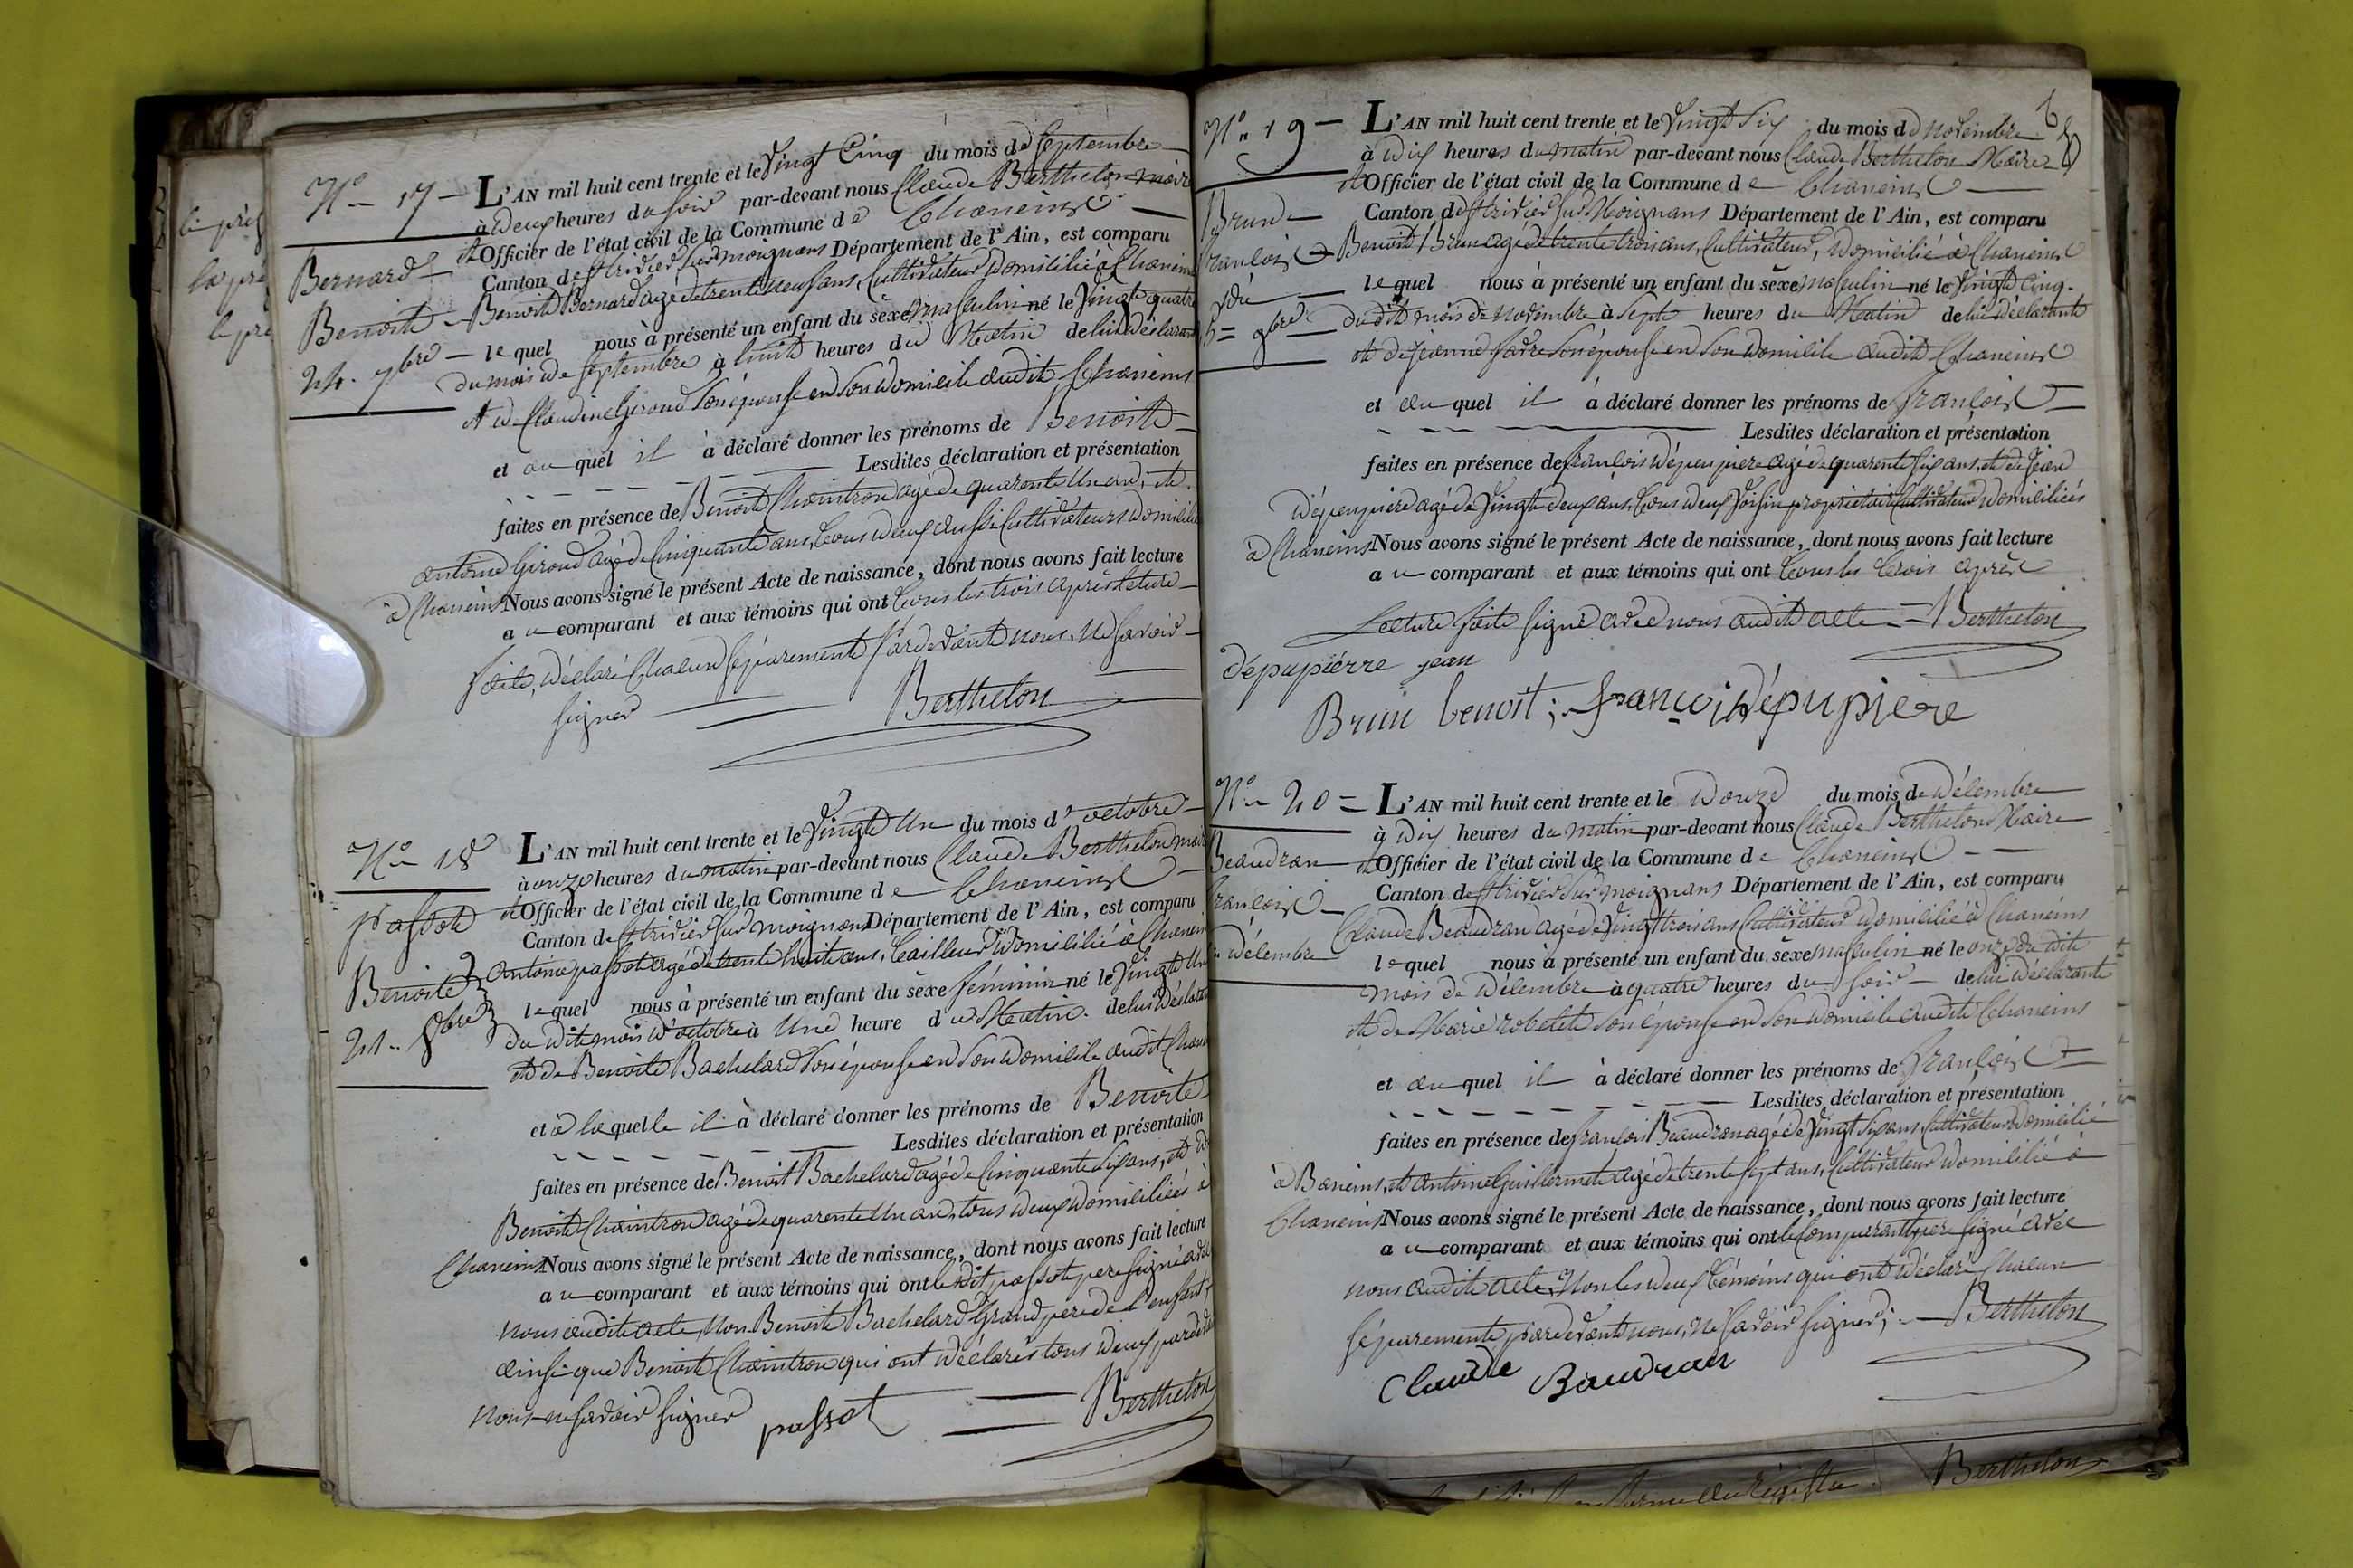 N° 17 — L'AN mil huit cent trente et le Vingt Cinq du mois de Septembre —
à Deux heures du Soir par-devant nous Claude Berthelon maire
et Officier de l'état civil de la Commune de Chaneins —
Bernard — Canton de St trivier sur moignans Département de l'Ain, est comparu
Benoit — Benoit Bernard agé de trente neuf ans, Cultivateur Domicilié à Chaneins
24. 7bre — le quel nous à présenté un enfant du sèxe masculin né le Vingt quatre
du mois de Septembre à huit heures du Matin de lui Déclarant
et de Claudine Giroud Son épouse en Son Domicile audit Chaneins
et au quel il à déclaré donner les prénoms de Benoit —
Lesdites déclaration et présentation
faites en présence de Benoit Chaintron agé de quarente Un an, et
antoine Giroud agé de Cinquante ans, tous Deux aussi Cultivateurs Domiciliés
à Chaneins Nous avons signé le présent Acte de naissance, dont nous avons fait lecture
au comparant et aux témoins qui ont tous les trois après lecture —
faite, Déclaré Chacun Séparement Pardevant nous, Ne Savoir —
Signer
Berthelon
N° 18 L'AN mil huit cent trente et le Vingt Un du mois d'octobre —
à onze heures du matin par-devant nous Claude Berthelon maire
et Officier de l'état civil de la Commune de Chaneins —
passot Canton de St trivier sur moignans Département de l'Ain, est comparu
Benoite antoine passot agé de trente huit ans, tailleur Domicilié à Chaneins
21. 8bre le quel nous à présenté un enfant du sèxe féminin né le Vingt Un
du Dit mois D'octobre à Une heure du Matin. de lui Déclarant
et de Benoite Bachelard Son épouse en Son Domicile audit Chaneins
et à la quelle il à déclaré donner les prénoms de Benoite —
Lesdites déclaration et présentation
faites en présence de Benoit Bachelard agé de Cinquante Six ans, et de
Benoit Chaintron agé de quarente Un an, tous Deux Domiciliés à
Chaneins Nous avons signé le présent Acte de naissance, dont nous avons fait lecture
au comparant et aux témoins qui ont ledit passot pere Signé avec
nous audit acte, Non Benoit Bachelard Grand pere de l'enfant,
ainsi que Benoit Chaintron qui ont Déclarés tous Deux pardevant
Nous ne Savoir Signer passot Berthelon
N° 19 — L'AN mil huit cent trente et le Vingt Six du mois de novembre
à Dix heures du matin par-devant nous Claude Berthelon Maire
et Officier de l'état civil de la Commune de Chaneins —
Brun Canton de St trivier sur Moignans Département de l'Ain, est comparu
François Benoit Brun agé de trente trois ans, Cultivateur, Domicilié à Chaneins
le quel nous à présenté un enfant du sèxe masculin né le Vingt Cinq.
9bre dudit mois de novembre à Sept heures du Matin de lui Déclarant
et de jeanne Son épouse en Son Domicile audit Chaneins
et au quel il à déclaré donner les prénoms de François —
Lesdites déclaration et présentation
faites en présence de françois Dépeupiere agé de quarente Six ans, et de jean
Dépeupiere agé de Vingt deux ans, tous Deux Voisin proprietaire Cultivateur Domiciliés
à Chaneins Nous avons signé le présent Acte de naissance, dont nous avons fait lecture
au comparant et aux témoins qui ont tous les trois après
Lecture faite Signé avec nous audit acte — Berthelon
dépupiérre jean
Brun benoit; françoi dépupiere
N° 20 = L'AN mil huit cent trente et le Douze du mois de Décembre
à Dix heures du matin par-devant nous Claude Berthelon Maire
Beaudran et Officier de l'état civil de la Commune de Chaneins —
françois Canton de St trivier sur moignans Département de l'Ain, est comparu
Claude Beaudran agé de Vingt trois ans Cultivateur Domicilié à Chaneins
Décembre le quel nous à présenté un enfant du sèxe masculin né le onze du dit
mois de Décembre à quatre heures du Soir — de lui Déclarant
et de Marie robelet Son épouse en Son Domicile audit Chaneins
et au quel il à déclaré donner les prénoms de François —
Lesdites déclaration et présentation
faites en présence de françois Beaudran agé de Vingt Six ans, Cultivateur Domicilié
à Baneins, et antoine Guillermet agé de trente Sept ans, Cultivateur Domicilié à
Chaneins Nous avons signé le présent Acte de naissance, dont nous avons fait lecture
au comparant et aux témoins qui ont le Comparant pere Signé avec
nous audit acte, Non les Deux témoins qui ont Déclaré Chacun
Séparement, pardevant nous, Ne Savoir Signer; — Berthelon
Claude Baudran
au Régistre Berthelon